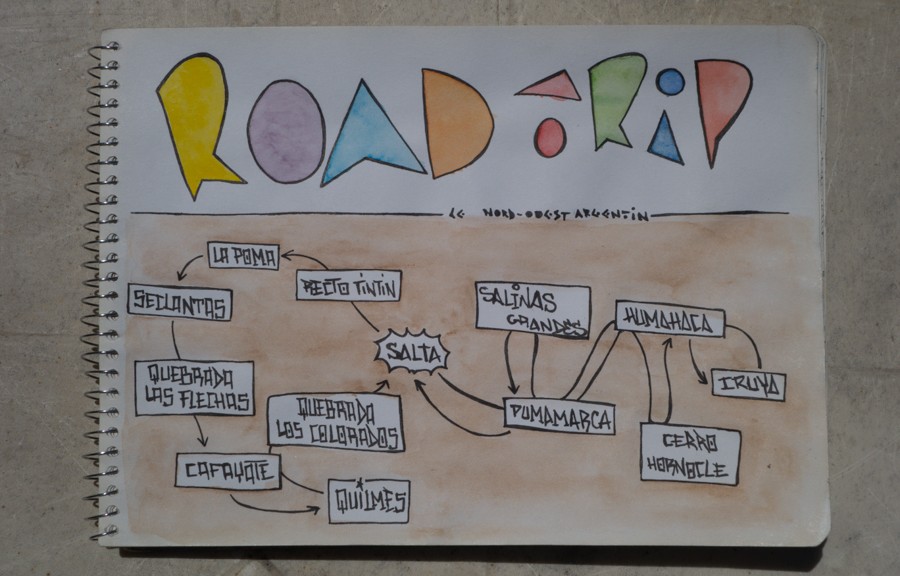 ROAD TRIP
LE NORD-OUEST ARGENTIN
LA POMA
RECTO TINTIN
SECLANTAS
SALINAS
GRANDES
HUMAHACA
SALTA
QUEBRADA
LAS FLECHAS
IRUYA
QUEBRADA
LOS COLORADOS
PUMAMARCA
CERRO
HORNOCLE
CAFAYATE
QUILMES